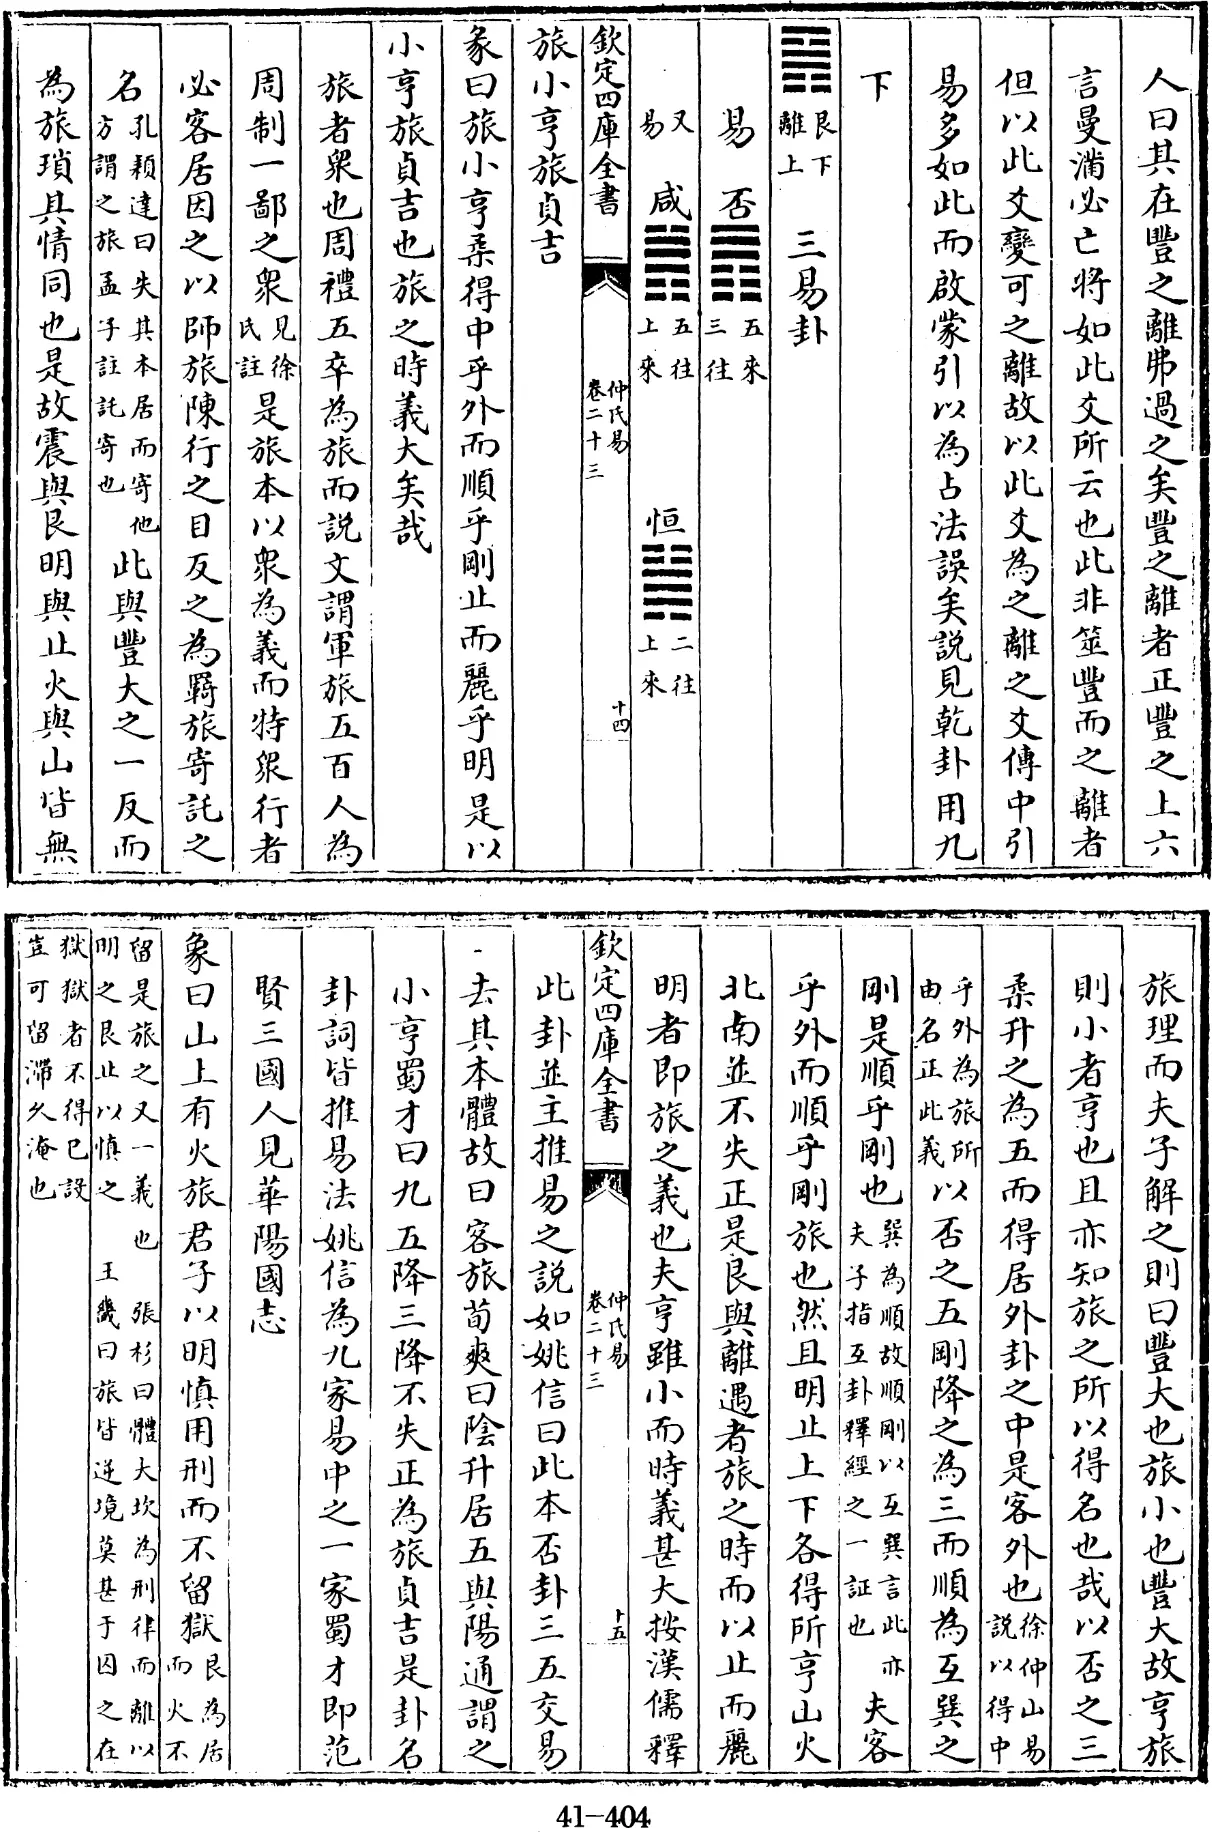 人曰其在豐之離弗過之矣豐之離者正豐之上六
言曼滿必亡將如此爻所云也此非筮豐而之離者
但以此爻變可之離故以此爻為之離之爻傳中引
易多如此而啟蒙引以為占法誤矣說見乾卦用九
下
䷷艮下離上 三易卦
易 否䷋五來三往
又易 咸䷞五往上來 恒䷟二往上來
欽定四庫全書 仲氏易 卷二十三 十四
旅小亨旅貞吉
彖曰旅小亨柔得中乎外而順乎剛止而麗乎明是以
小亨旅貞吉也旅之時義大矣哉
旅者衆也周禮五卒為旅而說文謂軍旅五百人為
周制一鄙之衆見徐氏註是旅本以衆為義而特衆行者
必客居因之以師旅陳行之目反之為羇旅寄託之
名孔穎達曰失其本居而寄他方謂之旅孟子註託寄也此與豐大之一反而
為旅瑣其情同也是故震與艮明與止火與山皆無
旅理而夫子解之則曰豐大也旅小也豐大故亨旅
則小者亨也且亦知旅之所以得名也哉以否之三
柔升之為五而得居外卦之中是客外也徐仲山易說以得中
乎外為旅所由名正此義以否之五剛降之為三而順為互巽之
剛是順乎剛也巽為順故順剛以互巽言此亦夫子指互卦釋經之一証也夫客
乎外而順乎剛旅也然且明止上下各得所亨山火
北南並不失正是艮與離遇者旅之時而以止而麗
明者即旅之義也夫亨雖小而時義甚大按漢儒釋
欽定四庫全書 仲氏易 卷二十三 十五
此卦並主推易之說如姚信曰此本否卦三五交易
去其本體故曰客旅荀爽曰陰升居五與陽通謂之
小亨蜀才曰九五降三降不失正為旅貞吉是卦名
卦詞皆推易法姚信為九家易中之一家蜀才即范
賢三國人見華陽國志
象曰山上有火旅君子以明慎用刑而不留獄艮為居而火不
留是旅之又一義也 張杉曰體大坎為刑律而離以明之艮止以慎之 王畿曰旅皆逆境莫甚于囚之在
獄獄者不得已設豈可留滯久淹也
41-404